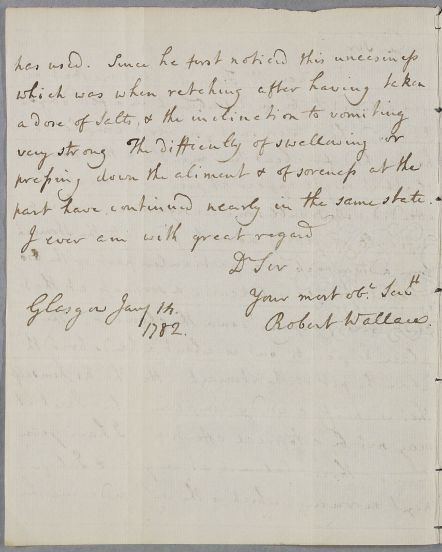 has used. Since he first noticed this uneesiness
which was when retching after having taken
a dose of Salts, & the inclination to vomiting
very strong The difficulty of swallowing or
pressing down the aliment & of soreness at the
part have continued nearly in the same state.
I ever am with great regard
Dr Sir
Your most obt. Servt
Glasgow Jany 14.
1782.
Robert Wallace.